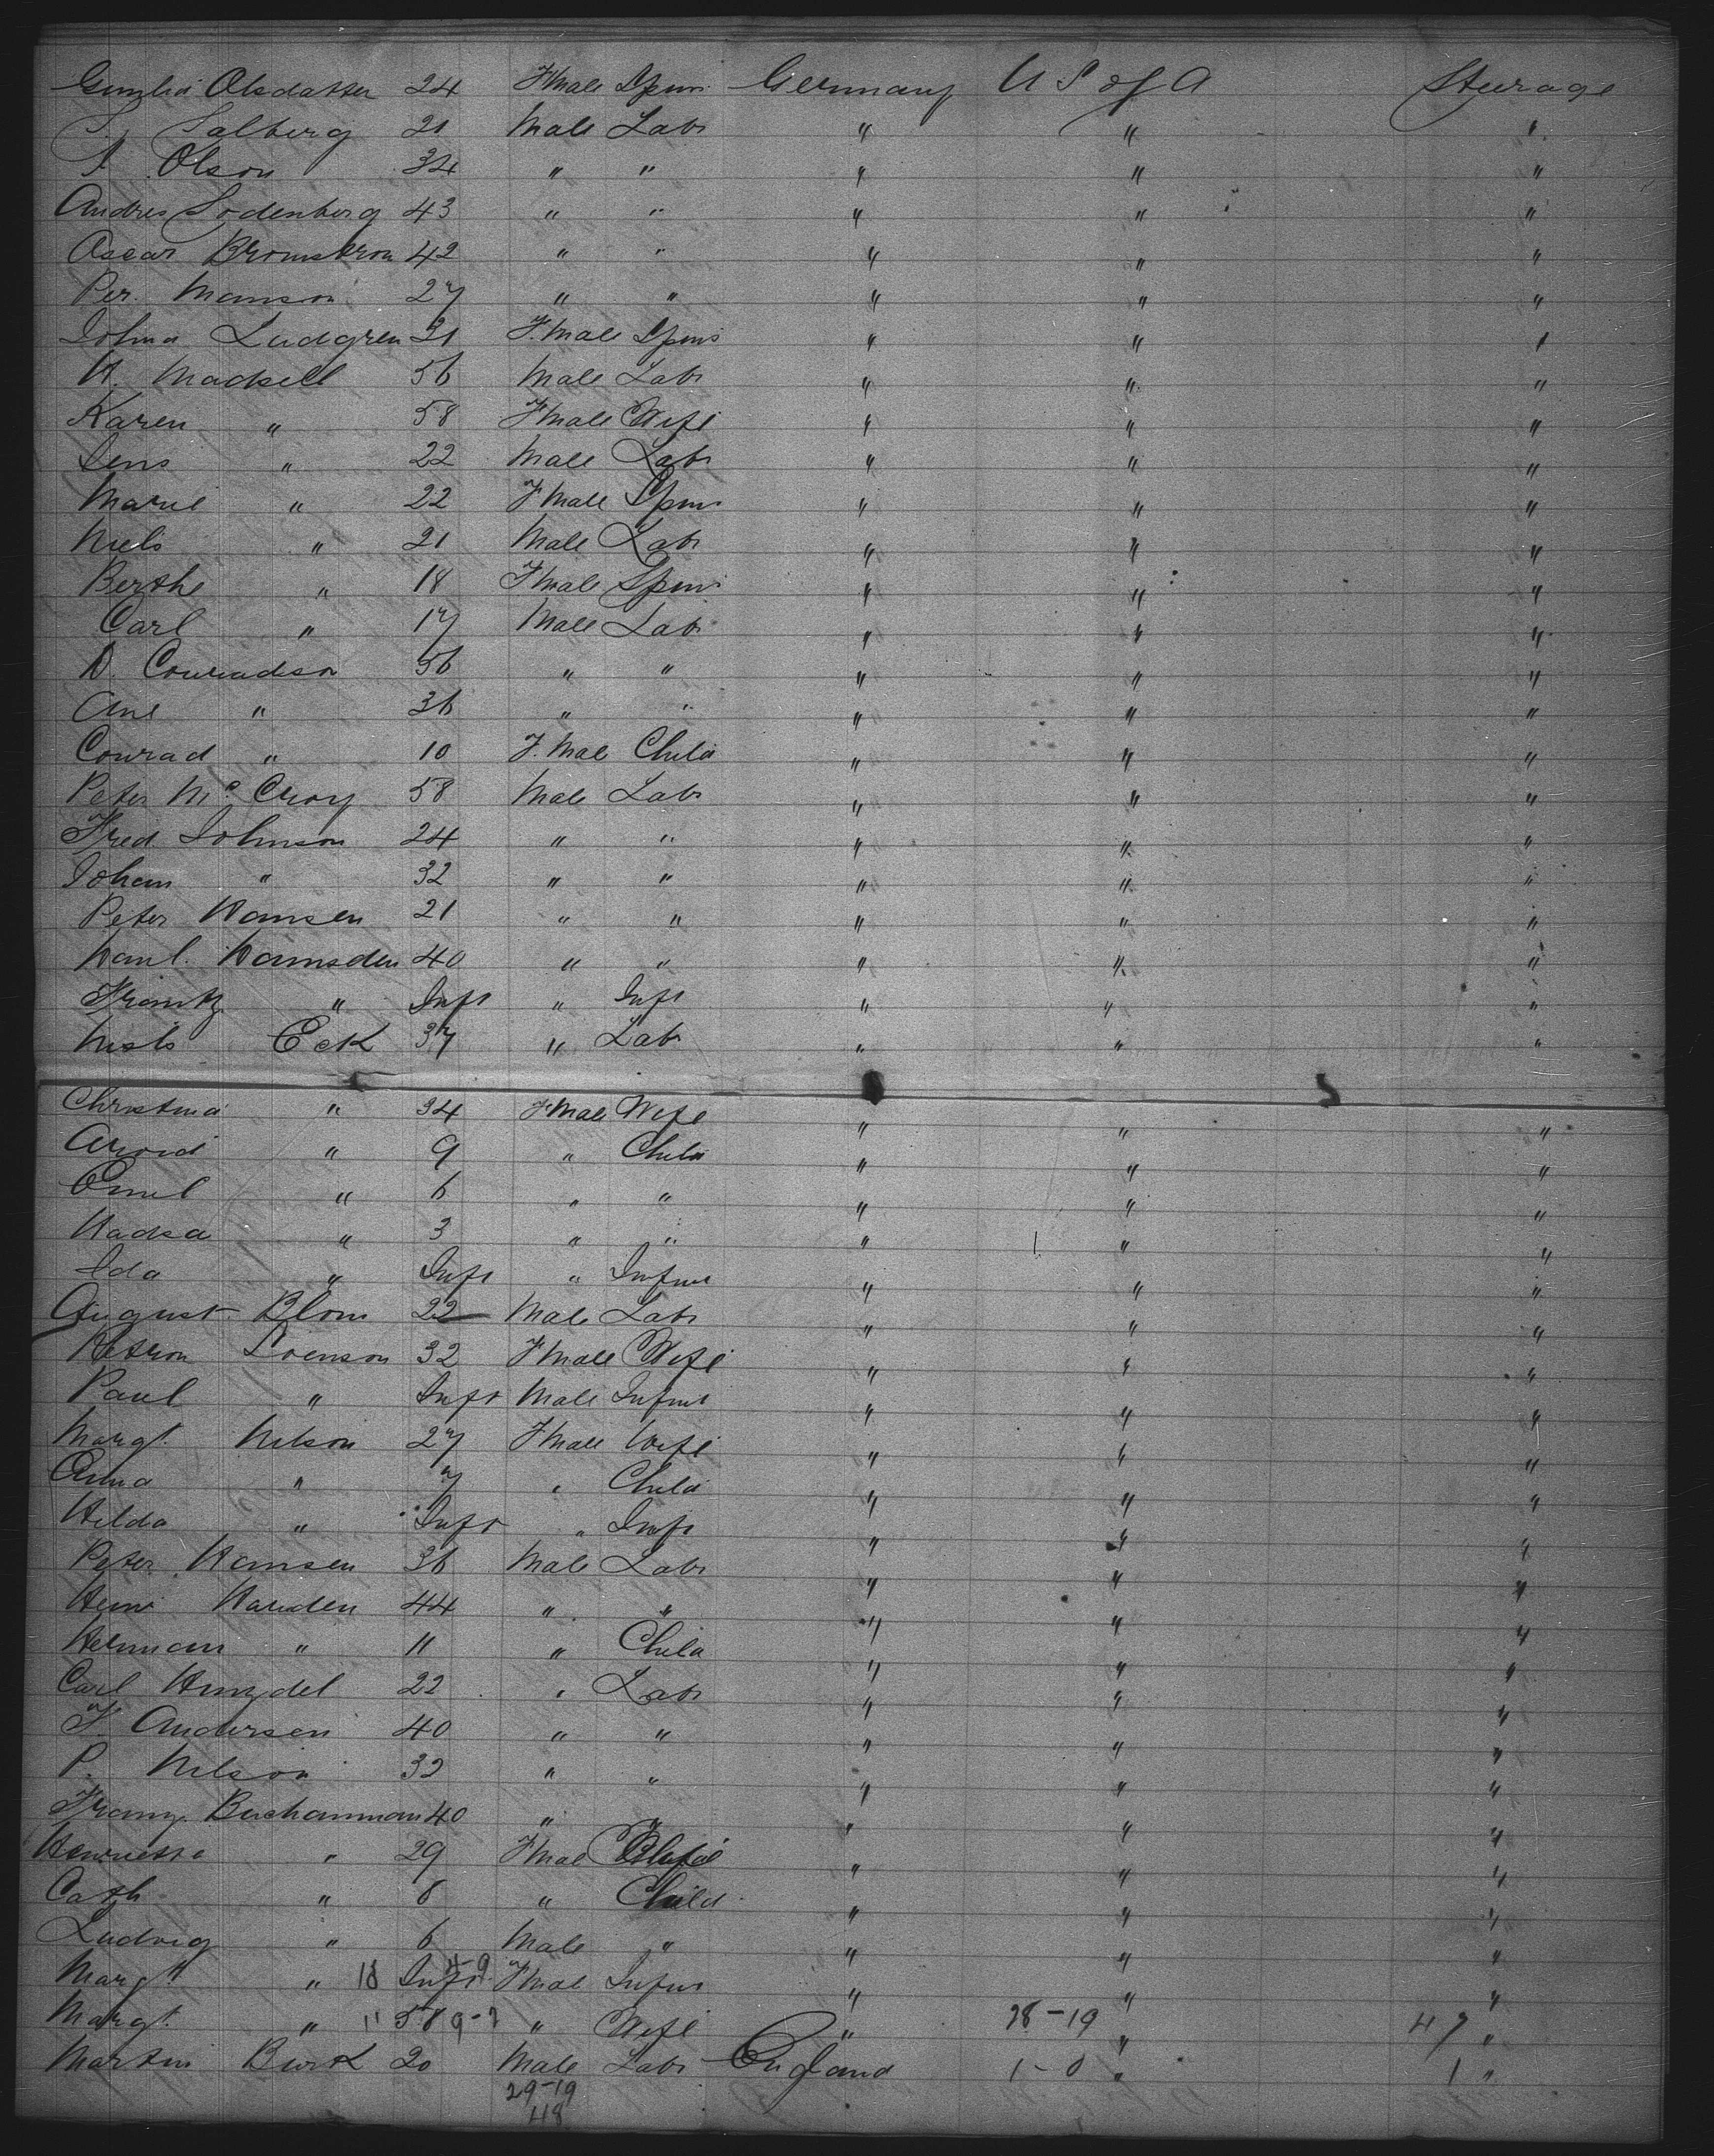 Olsdatter 24 Fmale Spins Germany U S of A Steerage
Salberg 21 Male Labr " " "
Olson 34 " " " " "
Andres Sodenberg 43 " " " " "
Oscar Bromstrom 42 " " " " "
Per. Manson 27 " " " " "
Ludgren 31 F.male Spins " " "
H. Madsell 56 Male Labr " " "
Karen " 58 Fmale Wife " " "
Jens " 22 Male Labr " " "
Marie " 22 Fmale Spins " " "
Niels " 21 Male Labr " " "
Berthe " 18 Fmale Spins " " "
Carl " 17 Male Labr " " "
D. Conradson 56 " " " " "
Ane " 36 " " " " "
Conrad " 10 F.Mal Child " " "
Peter McCroy 58 Male Labr " " "
Fred Johnson 24 " " " " "
Johan " 32 " " " " "
Peter Hansen 21 " " " " "
Hamsden 40 " " " " "
Frantz " Inft " Inft " " "
Niels Eck 37 " Labr " " "
Christina " 34 Fmale Wife " " "
Arvid " 9 " Child " " "
Emil " 6 " " " " "
" 3 " " " " "
Ida " Inft " Infnt " " "
August Blom 22 Male Labr " " "
Svenson 32 Fmale Wife " " "
Paul " Inft Male Infnt " " "
Margt. Nilson 27 Fmale Wife " " "
Anna " 7 " Child " " "
Hilda " Inft " Inft " " "
Peter Hansen 36 Male Labr " " "
Harden 44 " " " " "
Herman " 11 " Child " " "
Carl 22 " Labr " " "
F Andersen 40 " " " " "
P. Nilson 32 " " " " "
Franz Buchanman 40 " " " " "
Henrietta " 29 Fmal Wife " " "
Cath " 8 " Child " " "
Ludvig " 6 Male " " " "
Margt " 18 Inft 4-9 Fmal Infnt " " "
Margt. " 11 58 9-7 " Wife " 28-19 " 47 "
Martin Burk 20 Male Labr England 1-0 " 1 "
29-19
48